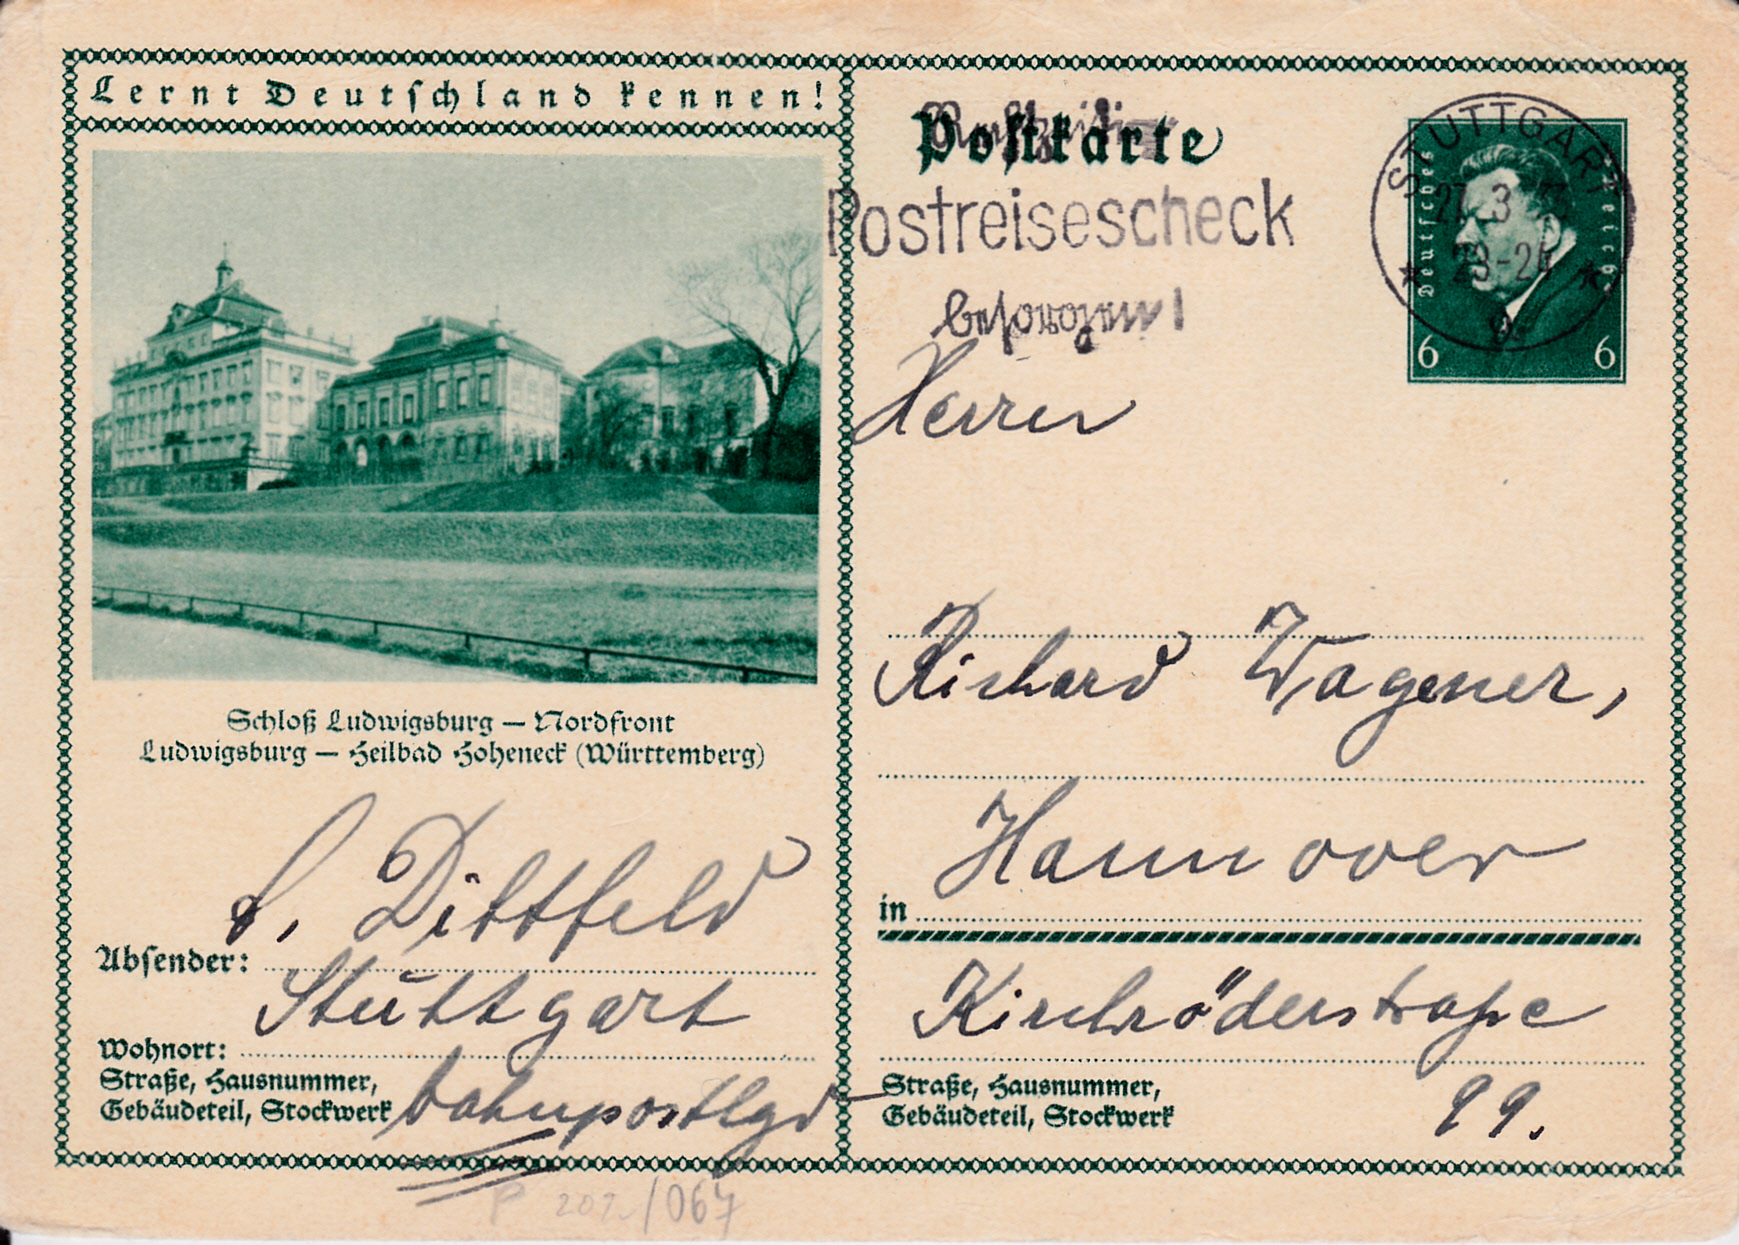 Lernt Deutschland kennen!
Schloß Ludwigsburg — Nordfront
Ludwigsburg — Heilbad Hoheneck (Württemberg)
Dittfeld
Absender:
Stuttgart
Wohnort:
Straße, Hausnummer,
Gebäudeteil, Stockwerk
bahnpostlgd
Postkarte
Rechtzeitig
Postreisescheck
besorgen!
STUTTGART
27. 3.
23-24
Deutsches Reich
6 6
Herrn
Richard Wagener,
Hannover
in
Kirchröderstraße
Straße, Hausnummer,
Gebäudeteil, Stockwerk
99.
P 202 /067